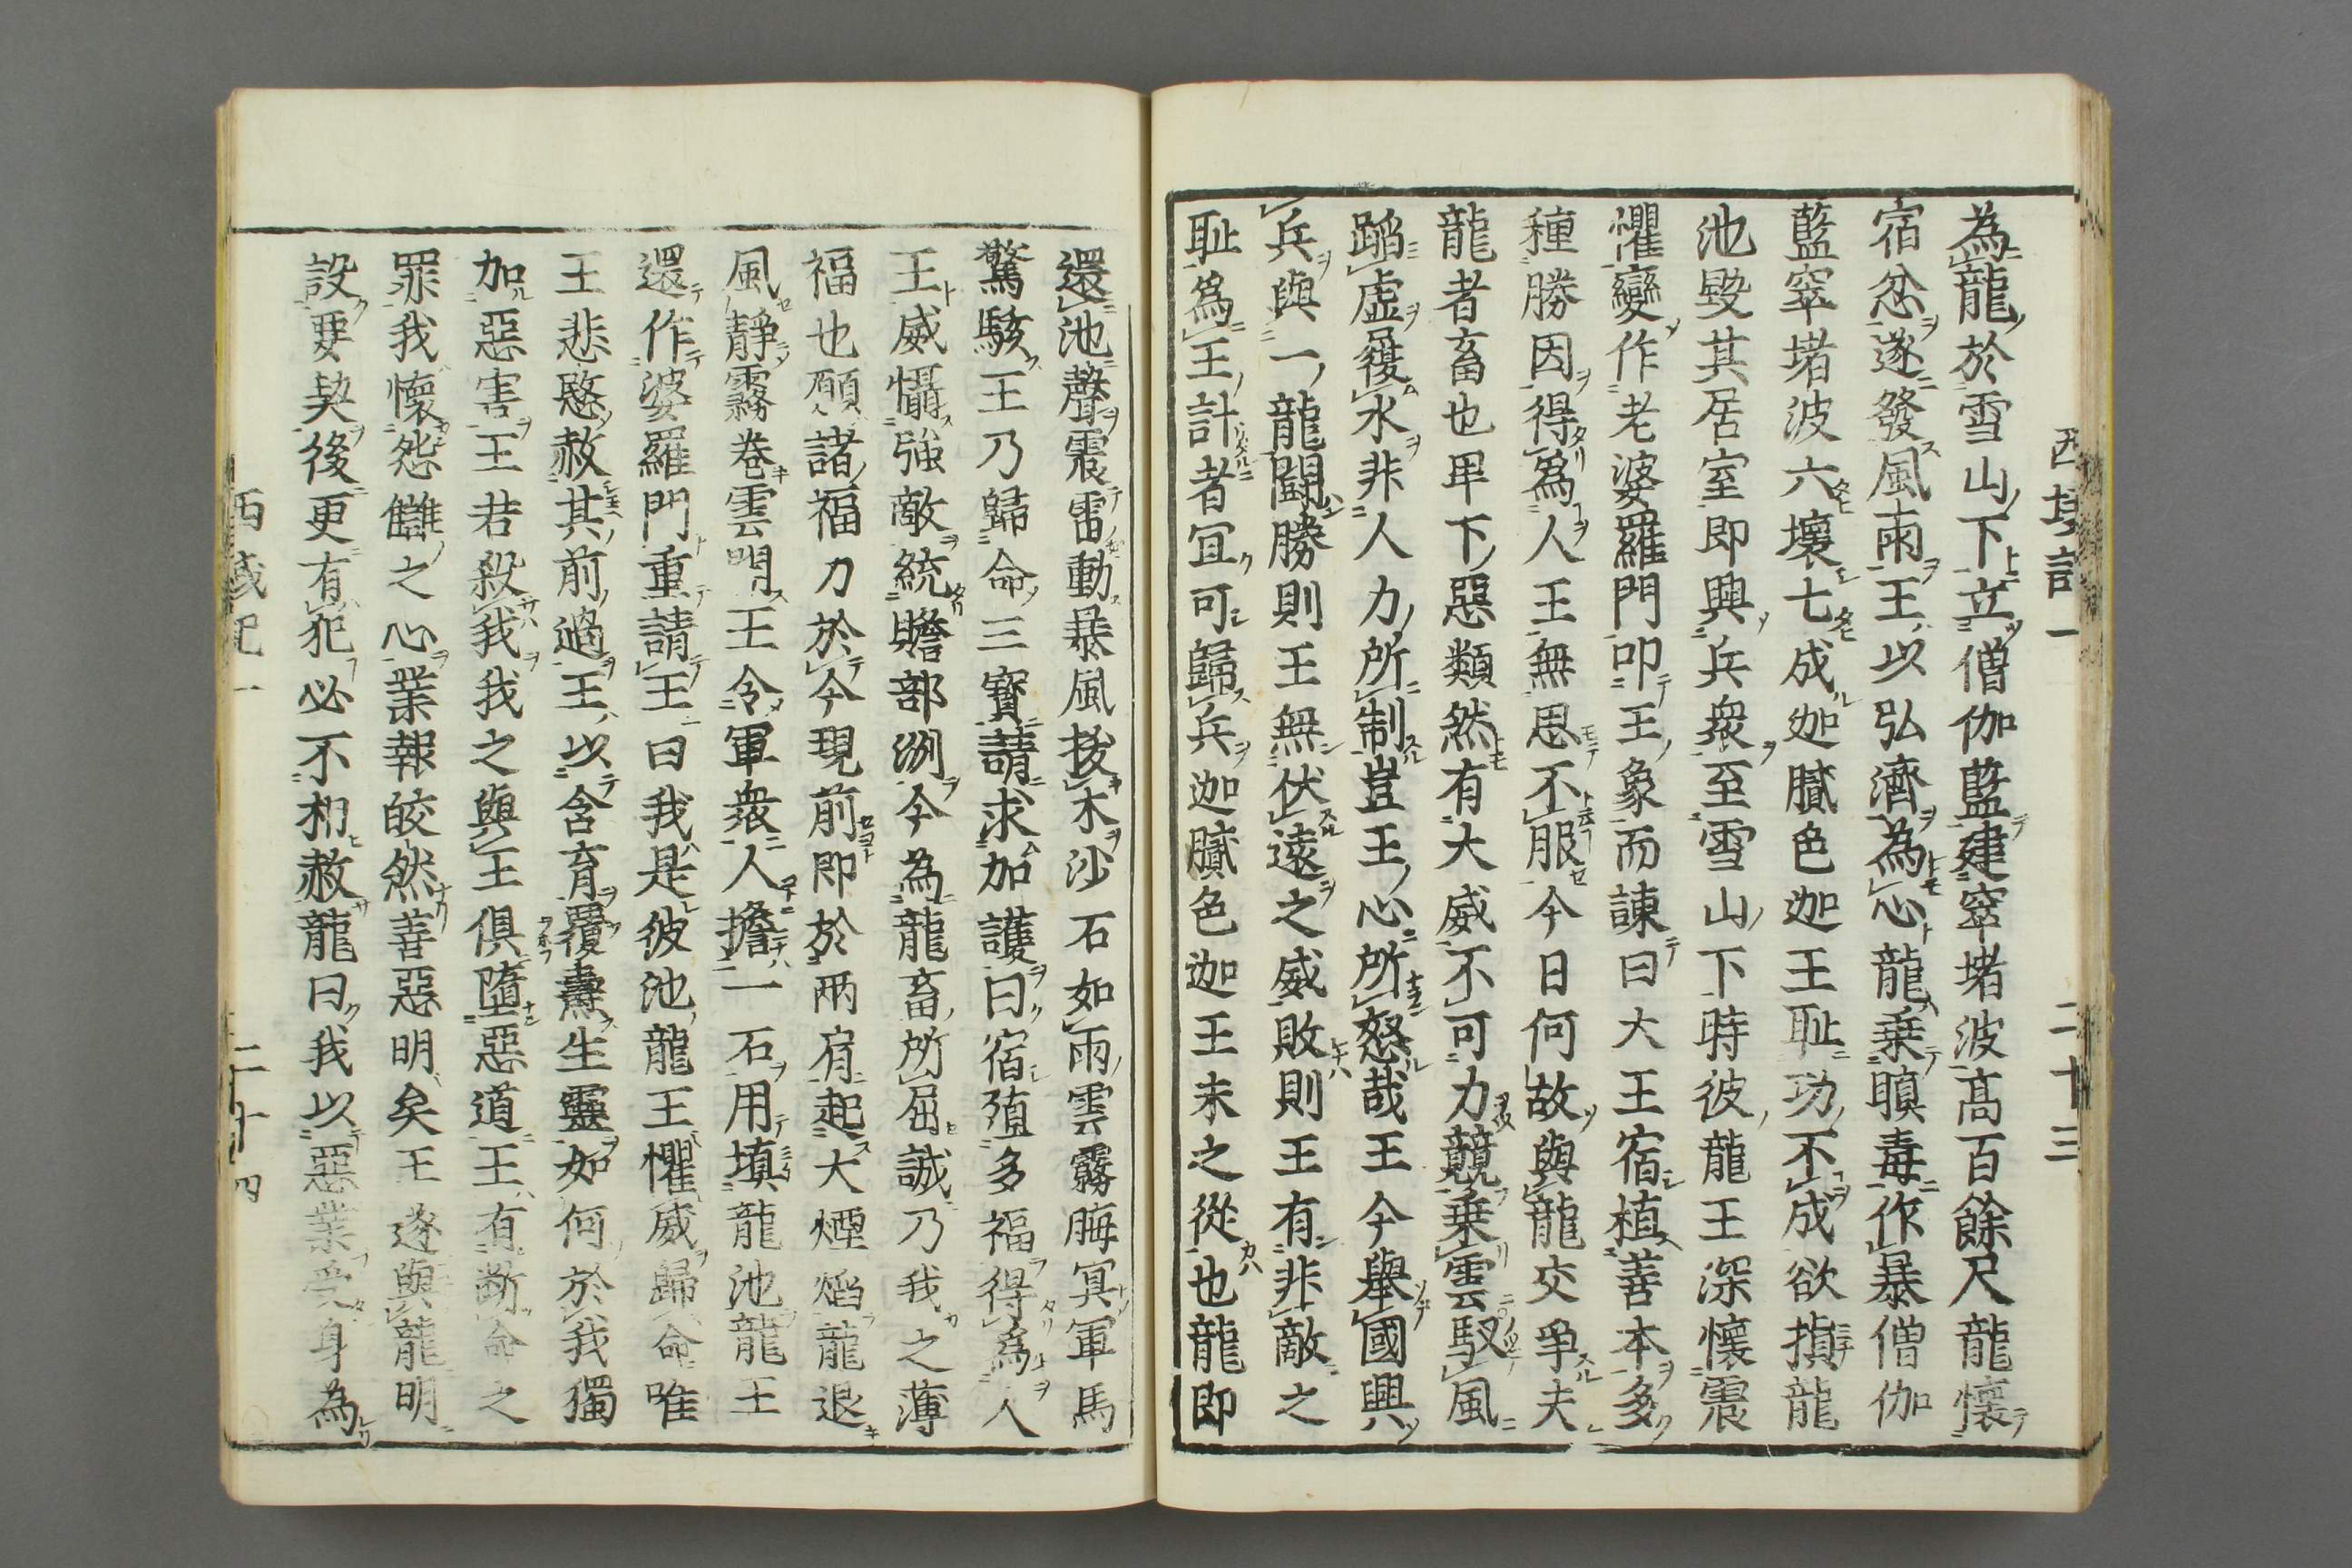 西域記一 二十三
為龍於雪山下立僧伽藍建窣堵波高百餘尺龍懷
宿忿遂發風雨王以弘濟為心龍乗瞋毒作暴僧伽
藍窣堵波六壞七成迦膩色迦王耻功不成欲損龍
池毀其居室即興兵衆至雪山下時彼龍王深懷震
懼變作老婆羅門叩王象而諫曰大王宿植善本多
種勝因得為人王無思不服今日何故與龍交爭夫
龍者畜也卑下惡類然有大威不可力競乗雲馭風
蹈虛履水非人力所制豈王心所怒哉王今舉國興
兵與一龍鬪勝則王無伏遠之威敗則王有非敵之
耻為王計者冝可歸兵迦膩色迦王未之從也龍即
還池聲震雷動暴風拔木沙石如雨雲霧晦冥軍馬
驚駭王乃歸命三寶請求加護曰宿殖多福得為人
王威懾強敵統贍部洲今為龍畜所屈誠乃我之薄
福也願諸福力於今現前即於兩肩起大煙焰龍退
風靜霧卷雲開王令軍衆人擔一石用填龍池龍王
還作婆羅門重請王曰我是彼池龍王懼威歸命唯
王悲愍赦其前過王以含育覆燾生靈如何於我獨
加惡害王若殺我我之與王俱墮惡道王有斷命之
罪我懷怨讎之心業報皎然善惡明矣王遂與龍明
設要契後更有犯必不相赦龍曰我以惡業受身為
西域記一 二十四